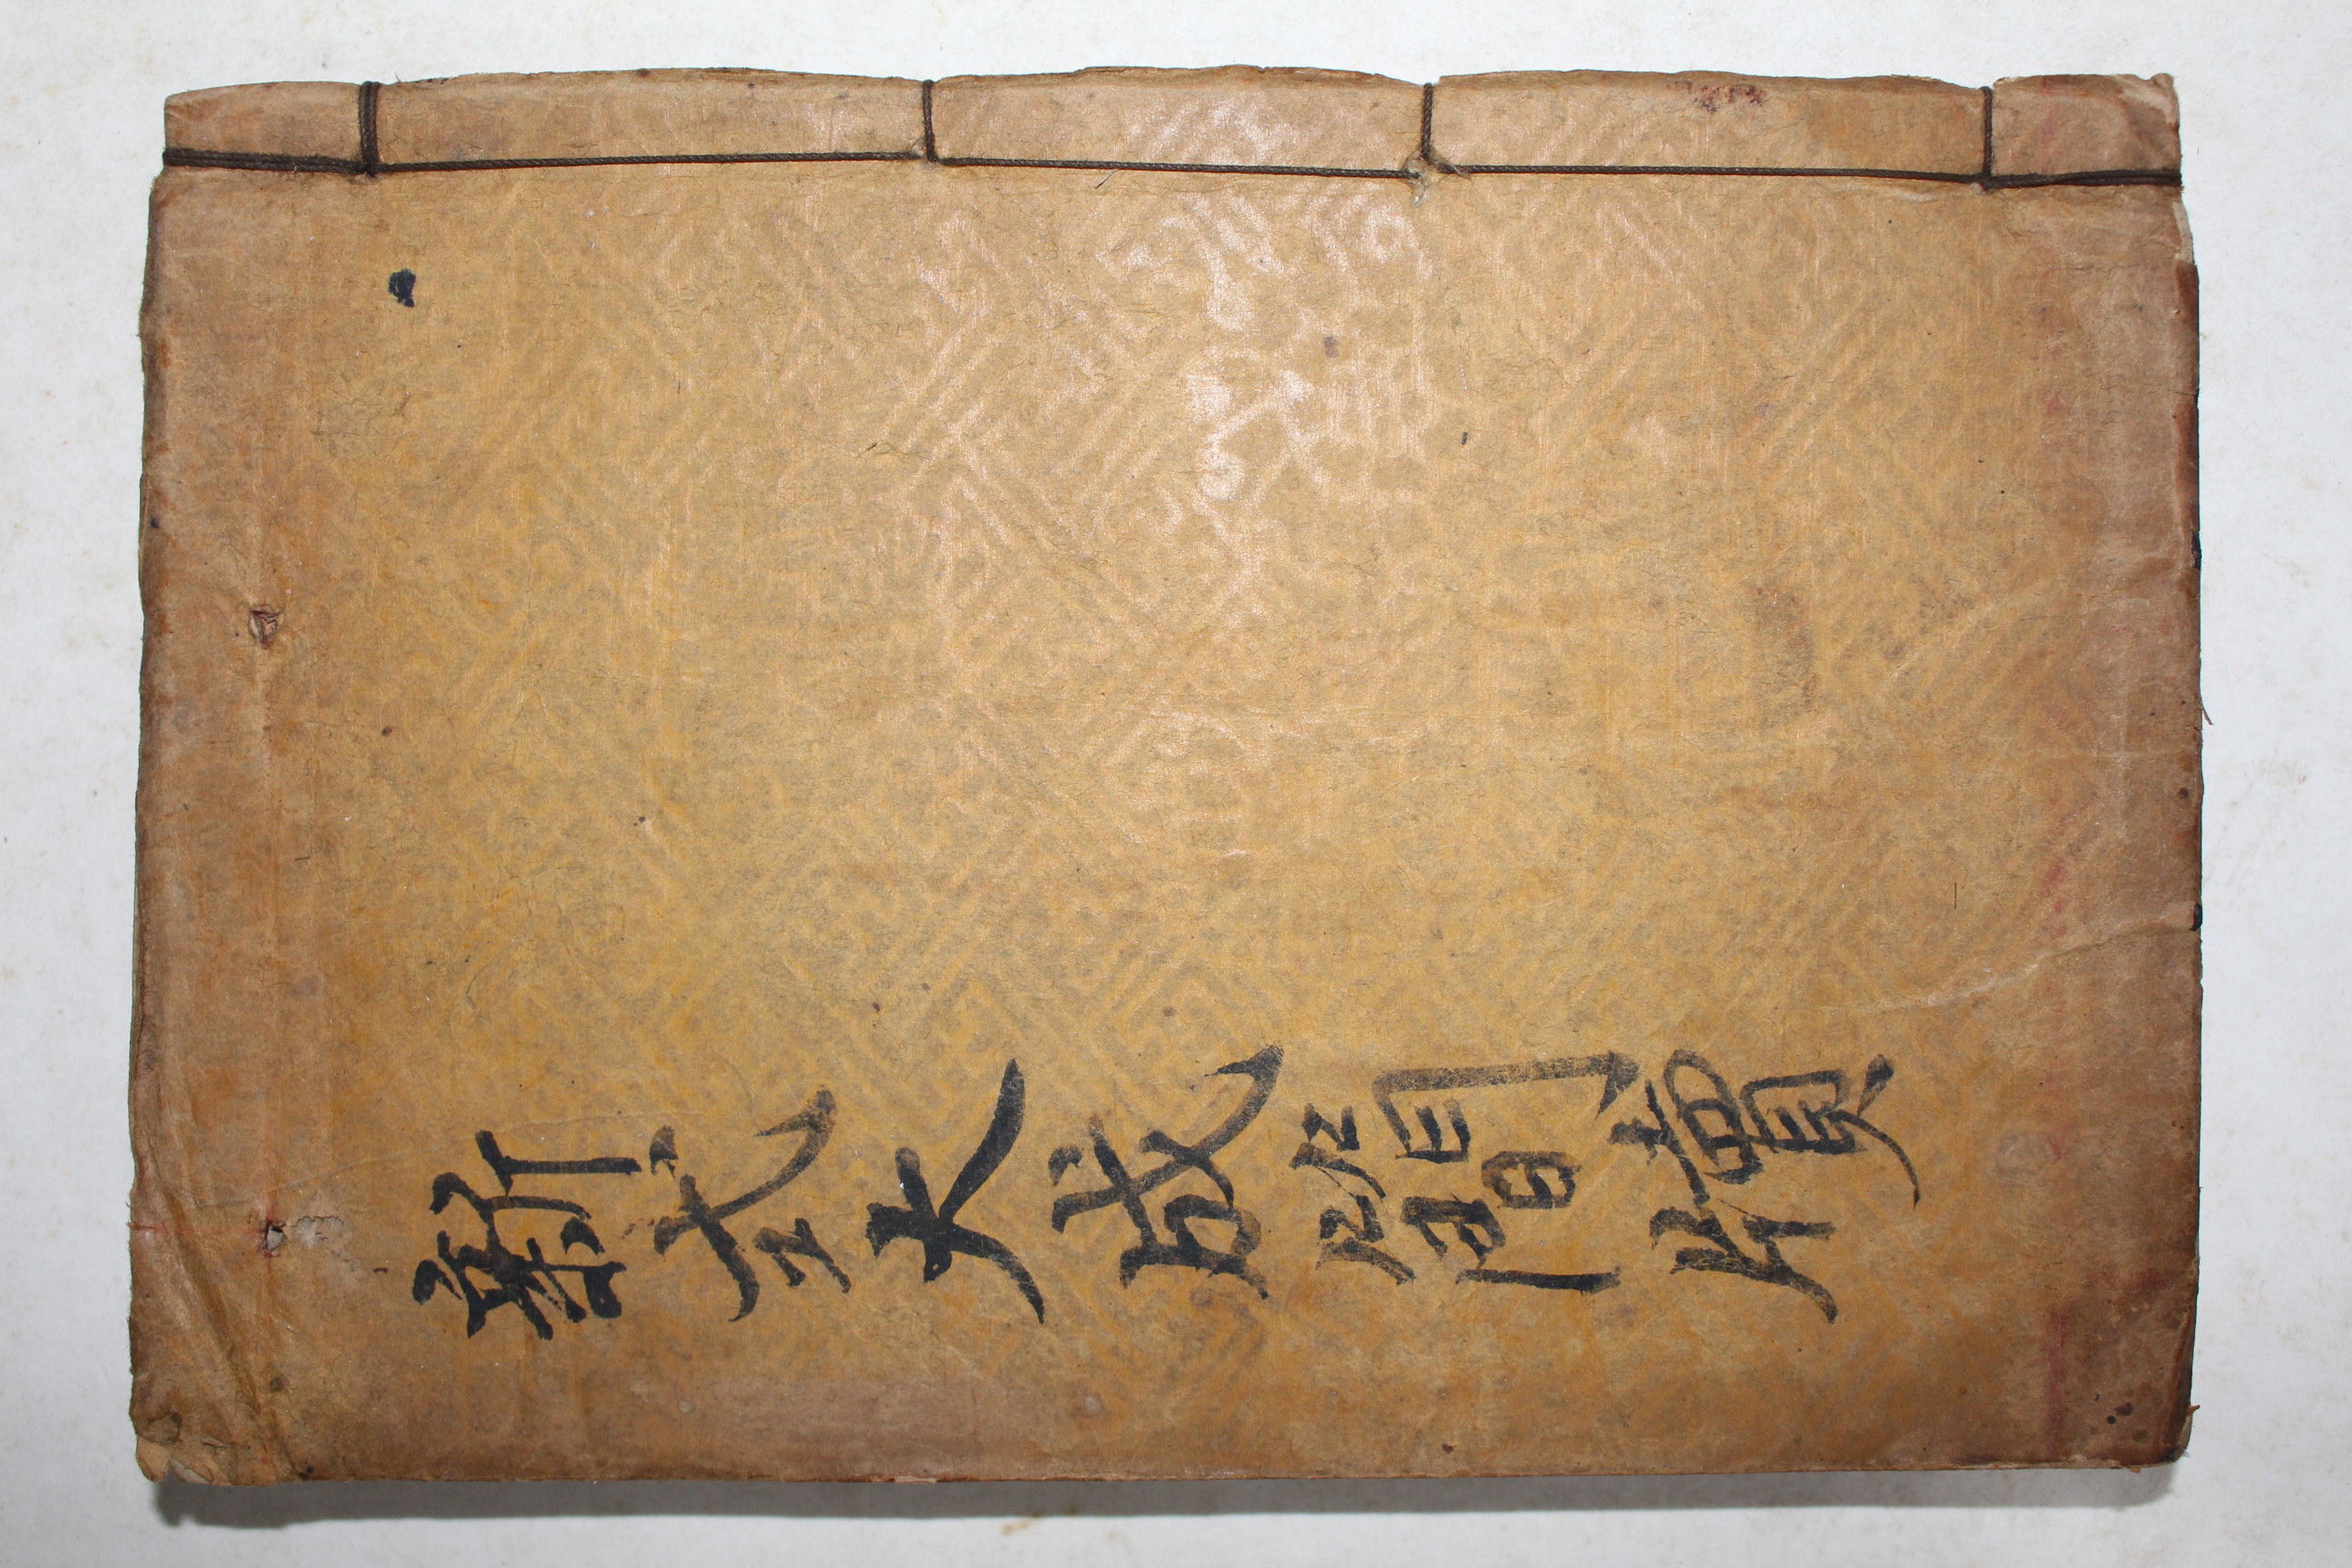 新式大成簡牘